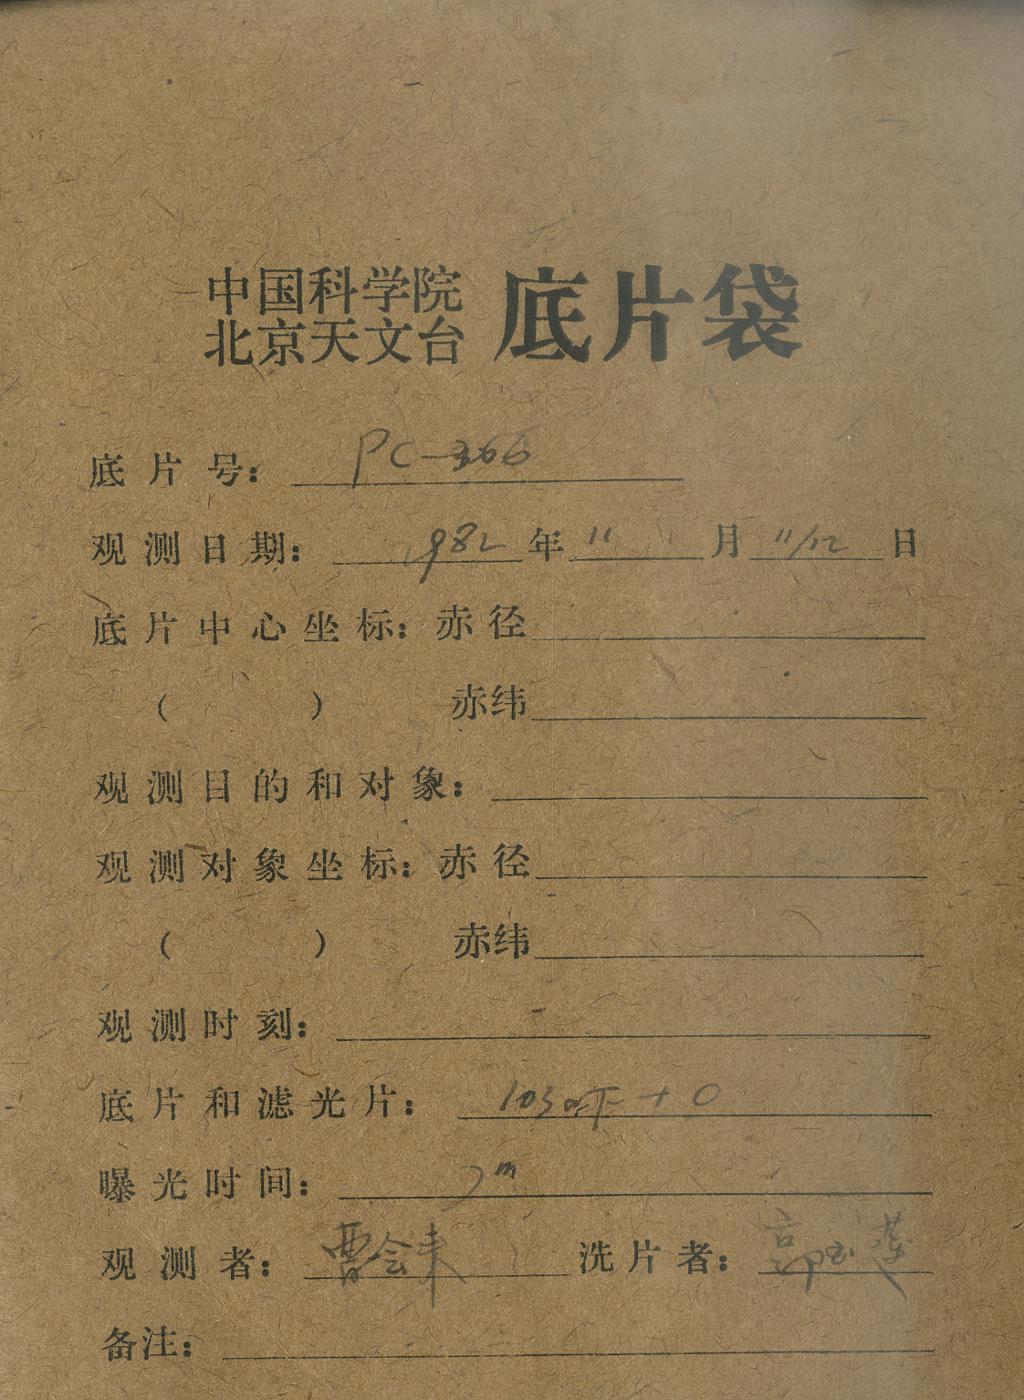 中国科学院
北京天文台 底片袋
底片号: PC-366
观测日期: 1982年11月11/12日
底片中心坐标: 赤径
( ) 赤纬
观测目的和对象:
观测对象坐标: 赤径
( ) 赤纬
观测时刻:
底片和滤光片: + O
曝光时间:
观测者: 曹会来 洗片者:
备注: